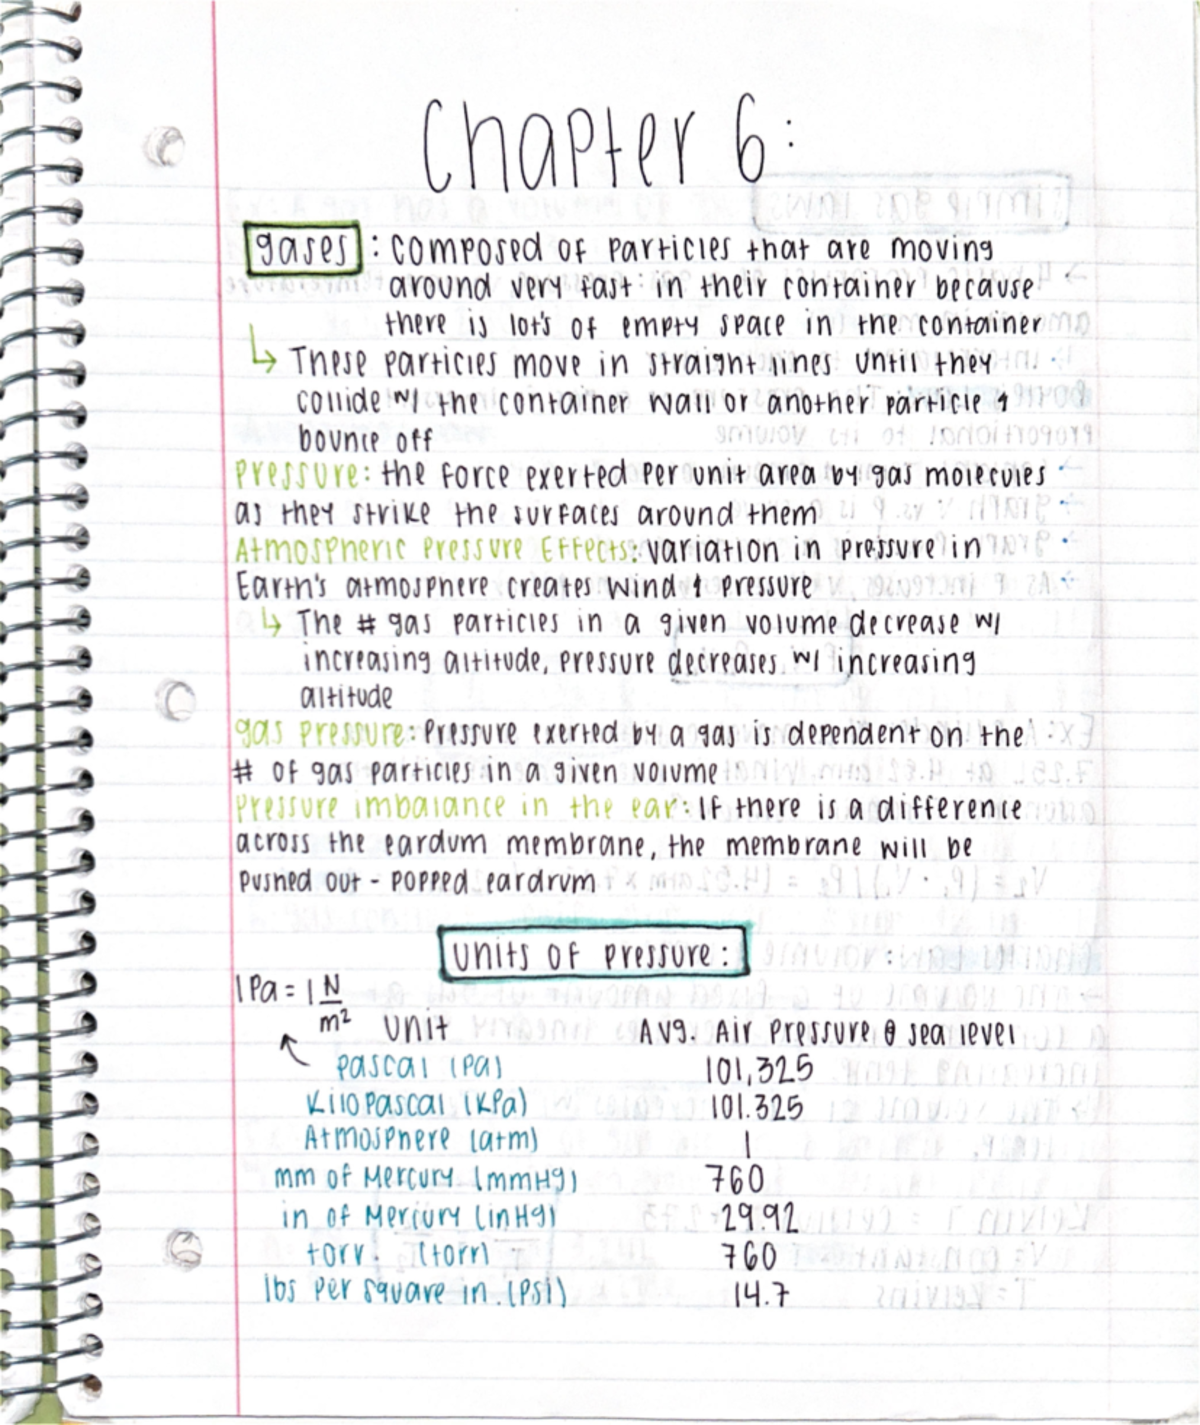 Chapter 6:
gases : composed of particles that are moving
around very fast in their container because
there is lot's of empty space in the container
↳ These particles move in straight lines until they
collide w/ the container wall or another particle &
bounce off
Pressure: the force exerted per unit area by gas molecules
as they strike the surfaces around them
Atmospheric Pressure Effects: variation in pressure in
Earth's atmosphere creates wind & pressure
↳ The # gas particles in a given volume decrease w/
increasing altitude, pressure decreases w/ increasing
altitude
gas pressure: Pressure exerted by a gas is dependent on the
# of gas particles in a given volume
Pressure imbalance in the ear: If there is a difference
across the eardum membrane, the membrane will be
pushed out - popped eardrum
Units of pressure:
1 Pa = 1 N/m²
Unit Avg. Air Pressure @ sea level
Pascal (Pa) 101,325
KiloPascal (KPa) 101.325
Atmosphere (atm) 1
mm of Mercury (mmHg) 760
in of Mercury (inHg) 29.92
torr (torr) 760
lbs per square in. (psi) 14.7